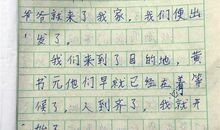 爷爷就来了我家，我们便出
发了。
我们来到了目的地，黄
书元他们早就已经在着等
候了，人到齐了，我就开
始了